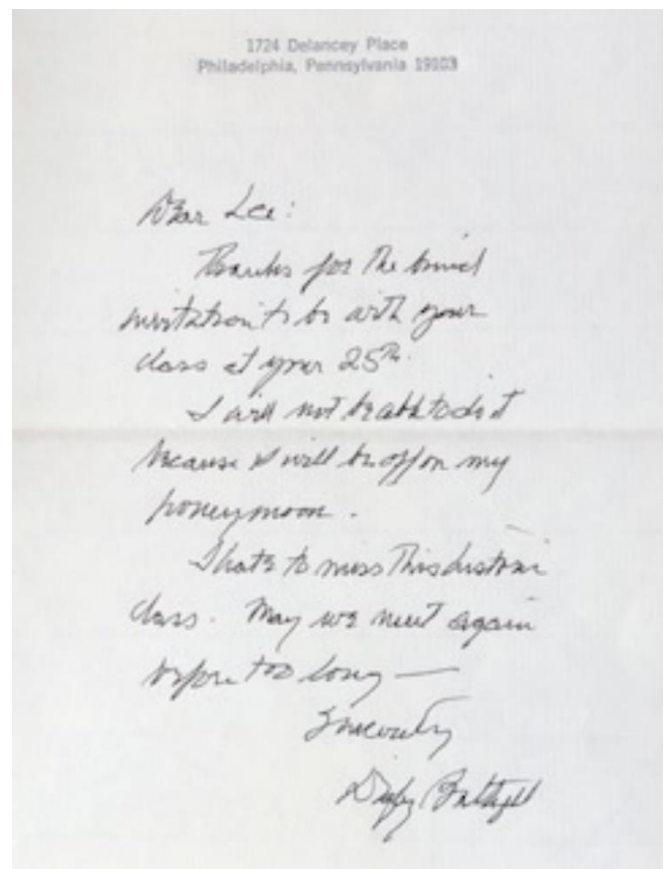 1724 Delancey Place
Philadelphia, Pennsylvania 19103
Dear Lee:
Thanks for the kind
invitation to be with your
class at your 25th.
I will not be able to do it
because I will be off on my
honeymoon.
I hate to miss this historic
class. May we meet again
before too long —
Sincerely
Digby Baltzell